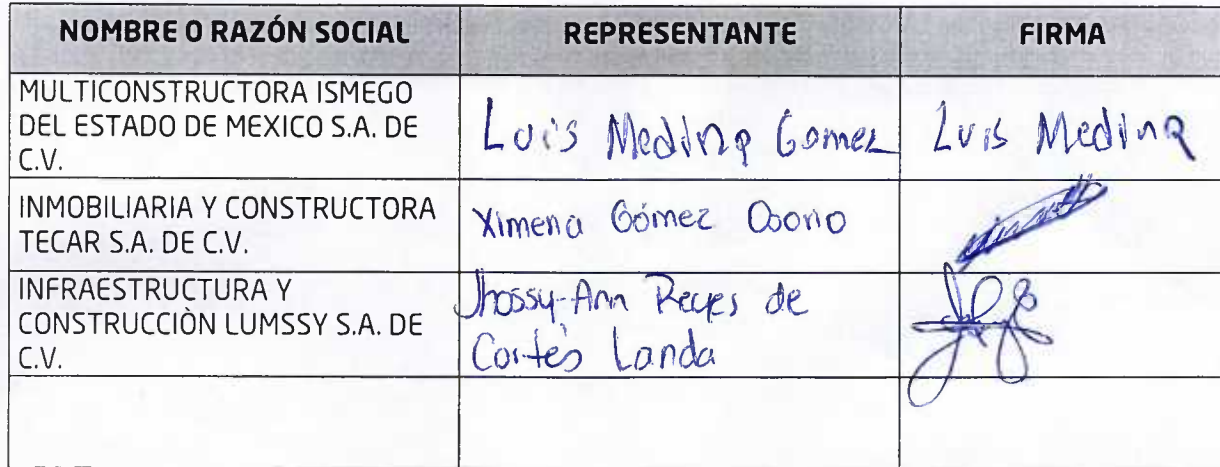 NOMBRE O RAZÓN SOCIAL REPRESENTANTE FIRMA
MULTICONSTRUCTORA ISMEGO
DEL ESTADO DE MEXICO S.A. DE
C.V.
Luis Medina Gomez Luis Medina
INMOBILIARIA Y CONSTRUCTORA
TECAR S.A. DE C.V.
Ximena Gómez Osorio
INFRAESTRUCTURA Y
CONSTRUCCIÒN LUMSSY S.A. DE
C.V.
Jhossy-Ann Reyes de
Cortés Landa